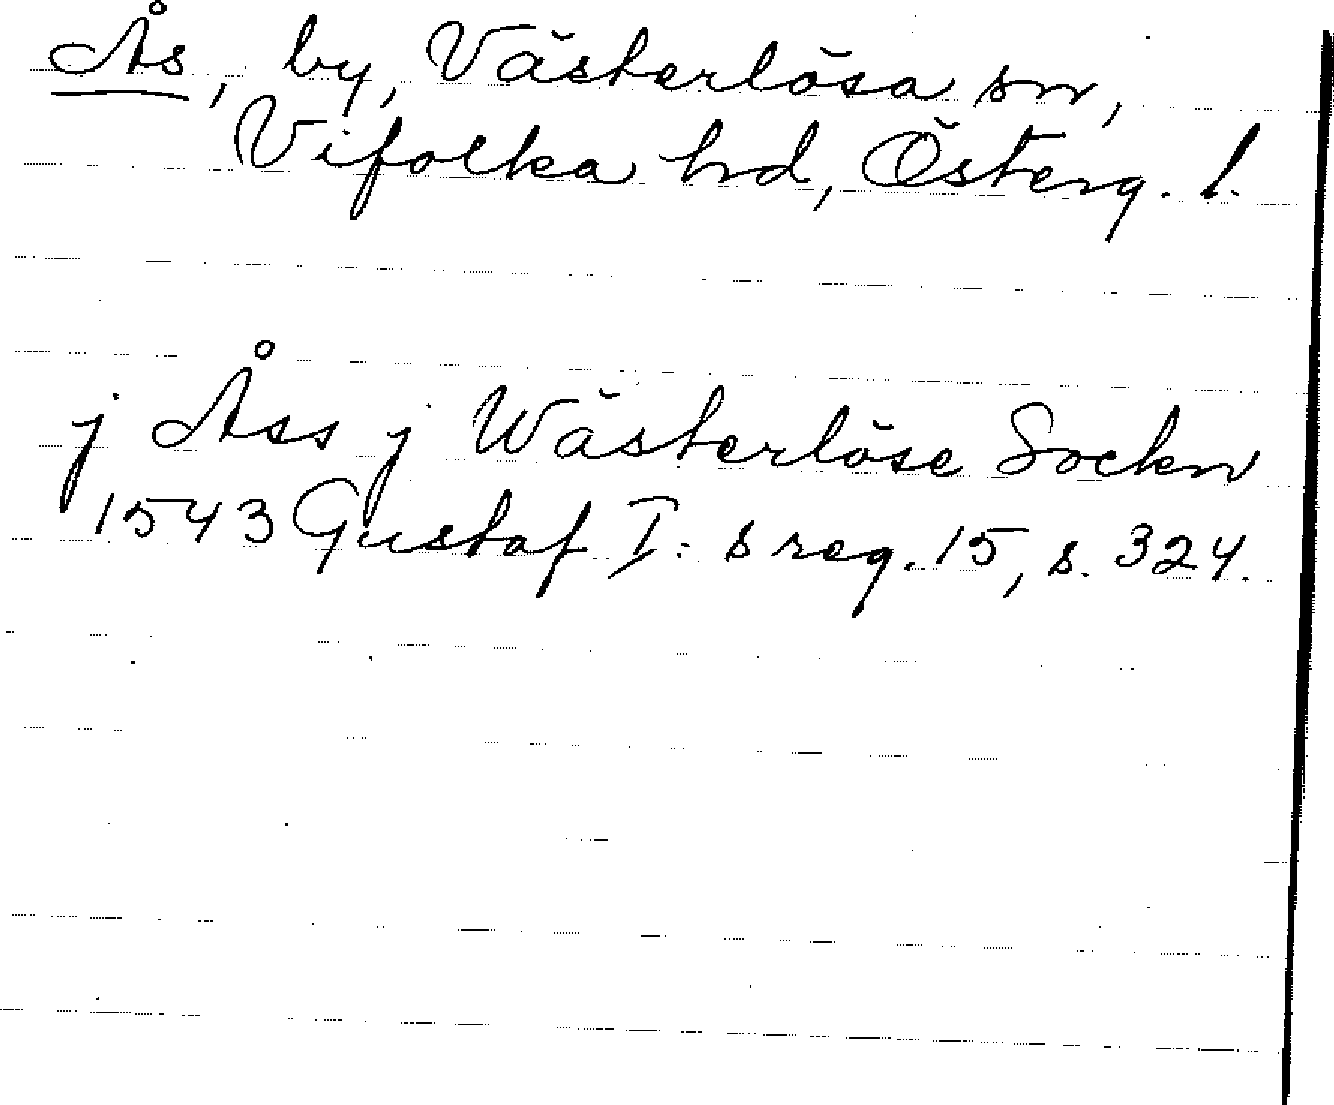 Ås, by, Västerlösa sn,
Vifolka hd, Österg. l.
j Åss j Wästerlöse Sockn
1543 Gustaf I: s reg. 15, s. 324.